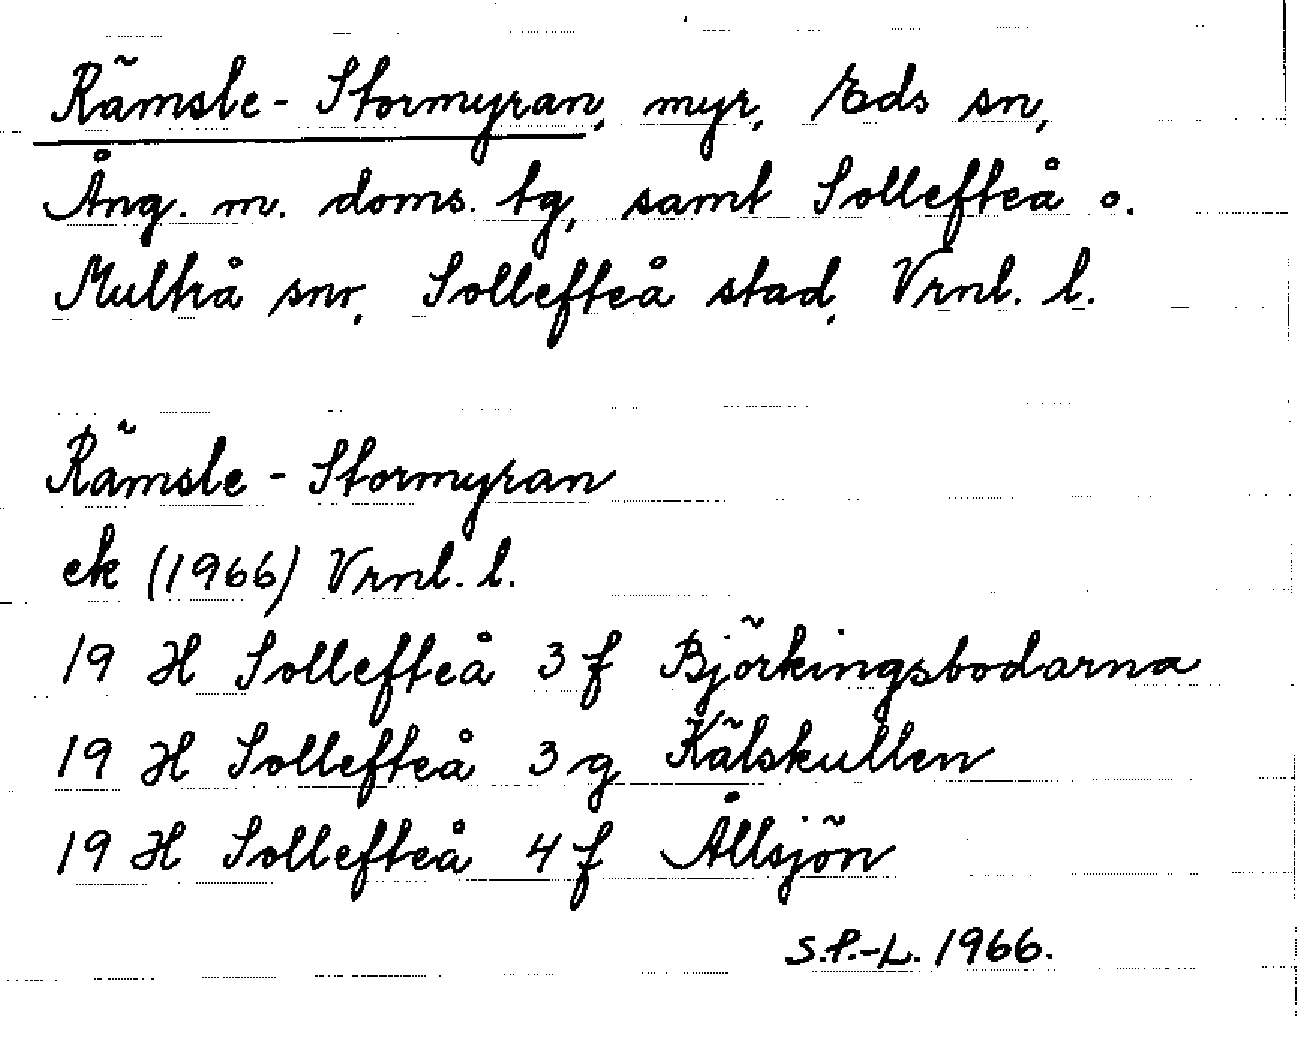 Rämsle-Stormyran, myr, Eds sn,
Ång. m. doms. tg, samt Sollefteå o.
Multrå snr, Sollefteå stad, Vrnl. l.
Rämsle-Stormyran
ek (1966) Vrnl. l.
19 H Sollefteå 3 f Björkingsbodarna
19 H Sollefteå 3 g Kälskullen
19 H Sollefteå 4 f Ållsjön
S.P.-L. 1966.